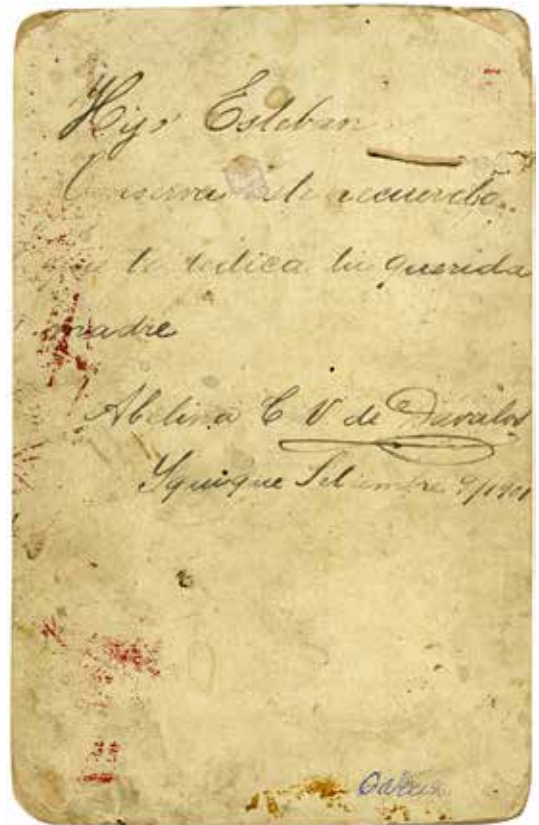 Hijo Esteban
Conserva este recuerdo
que te dedica tu querida
madre
Abelina C V de Davalos
Yquique Setiembre 9/1901